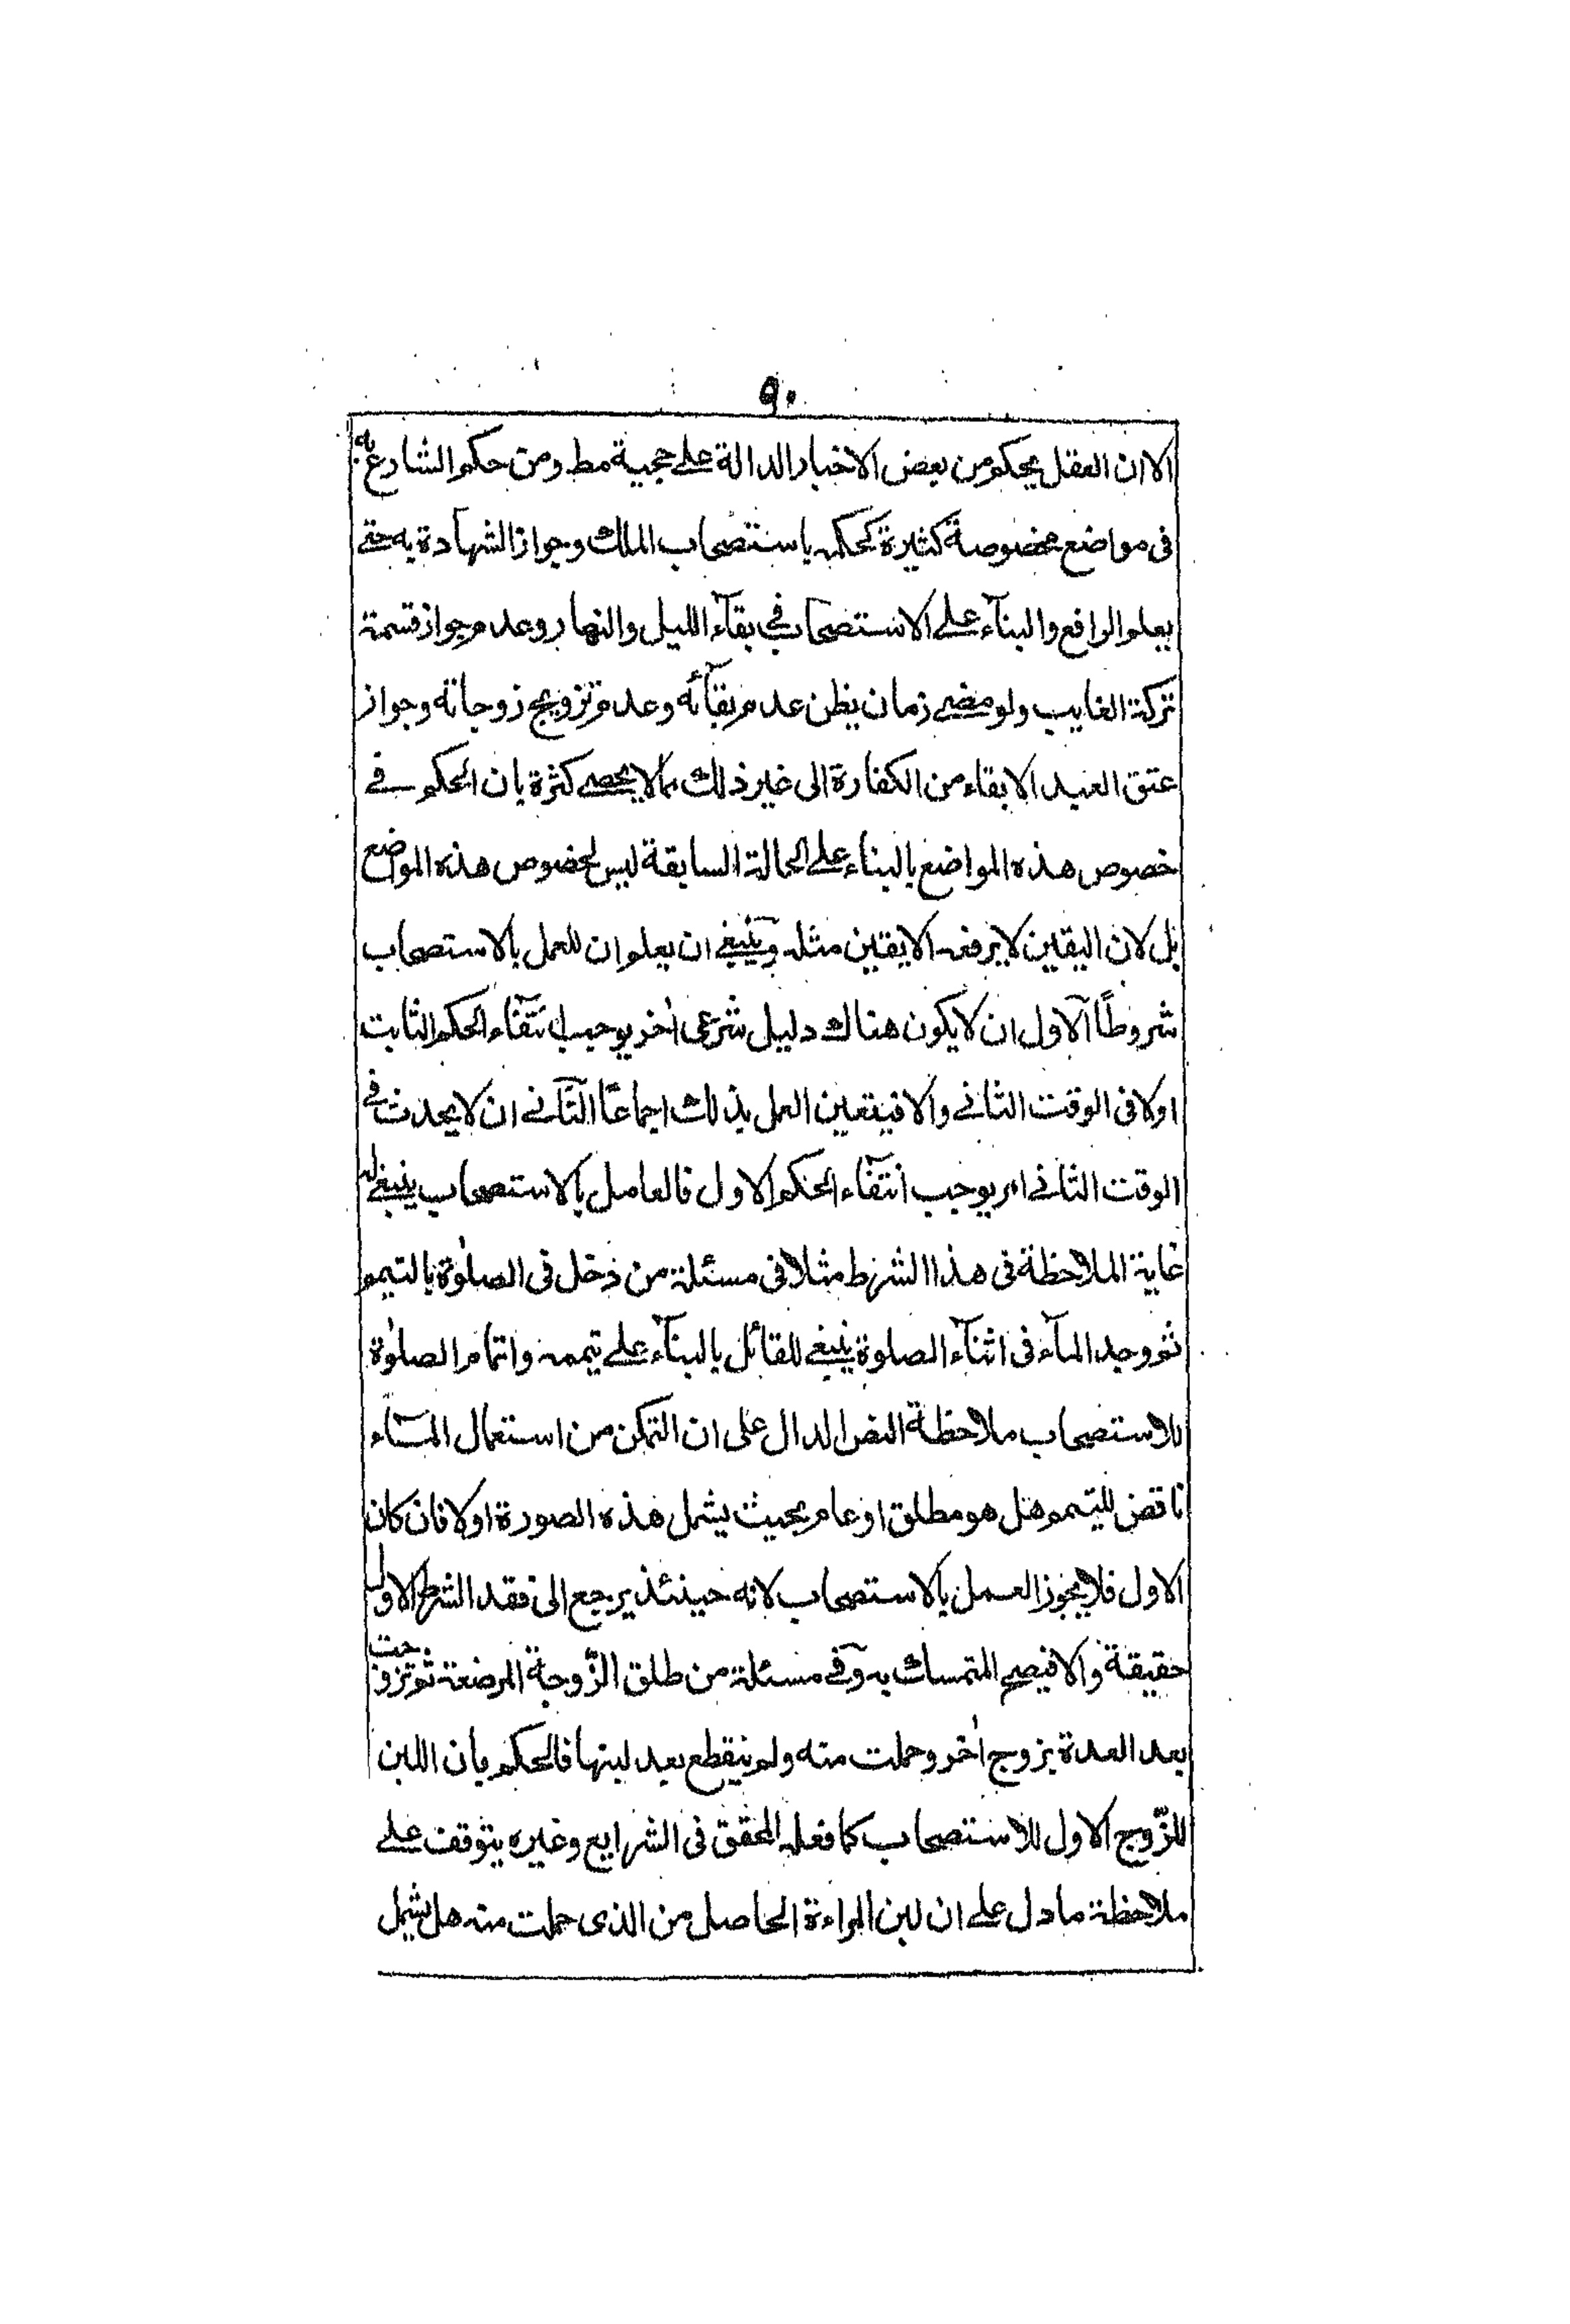 ٩٠
الا ان العقل يحكم من بعض الاخبار الدالة على حجية مط ومن حكم الشارع به
فى مواضع مخصوصة كثيرة كحكمه باستصحاب الملك وجواز الشهادة به حتى
يعلم الرافع والبنآء على الاستصحاب فى بقآء الليل والنهار وعدم جواز قسمة
تركة الغايب ولو مضى زمان يظن عدم بقآئه وعدم تزويج زوجاته وجواز
عتق العبد الابقاء من الكفارة الى غير ذلك مما لا يحصى كثرة بان الحكم فى
خصوص هذه المواضع بالبناء على الحالة السابقة ليس لخصوص هذه المواضع
بل لان اليقين لا يرفعه الا يقين مثله وينبغى ان يعلم ان للعمل بالاستصحاب
شروطًا الاول ان لا يكون هناك دليل شرعى اٰخر يوجب انتفآء الحكم الثابت
اولا فى الوقت الثانى والا فيتعين العمل بذلك اجماعًا الثانى ان لا يحدث فى
الوقت الثانى امر يوجب انتفآء الحكم الاول فالعامل بالاستصحاب ينبغى له
غاية الملاحظة فى هذا الشرط مثلا فى مسئلة من دخل فى الصلوٰة بالتيمم
ثم وجد المآء فى اثنآء الصلوة ينبغى للقائل بالبنآء على تيممه واتمام الصلوٰة
للاستصحاب ملاحظة النص الدال على ان التمكن من استعمال المآء
ناقض للتيمم هل هو مطلق او عام بحيث يشمل هذه الصورة اولا فان كان
الاول فلا يجوز العمل بالاستصحاب لانه حينئذ يرجع الى فقد الشرط الاول
حقيقة والا فيصح التمسك به وفى مسئلة من طلق الزّوجة المرضعة ثم تزوجت
بعد العدة بزوج اٰخر وحملت منه ولم ينقطع بعد لبنها فالحكم بان اللبن
للزّوج الاول للاستصحاب كما فعله المحقق فى الشرايع وغيره يتوقف على
ملاحظة ما دل على ان لبن المراءة الحاصل من الذى حملت منه هل يشمل